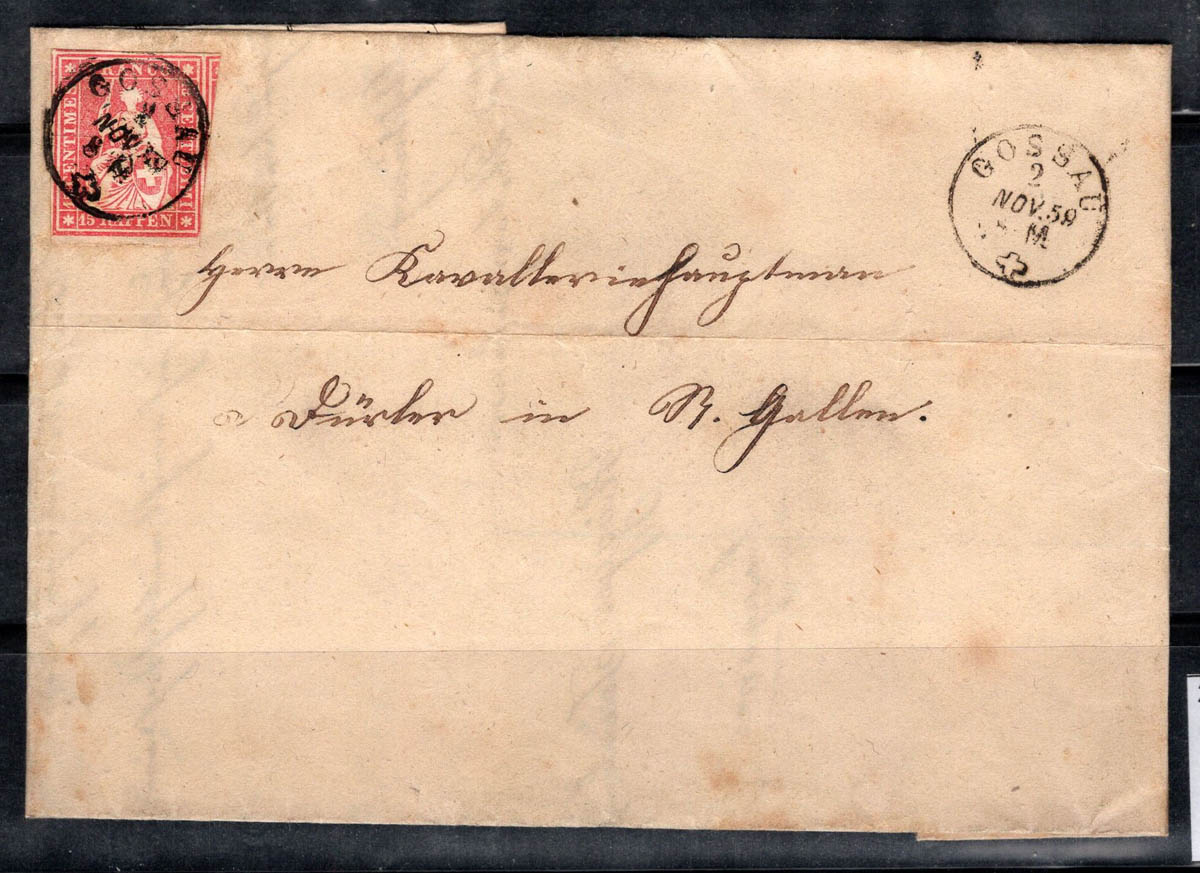 FRANCO
15 RAPPEN
GOSSAU
GOSSAU
2
NOV. 59
M
Herrn Kavalleriehauptman
Dürler in St. Gallen.